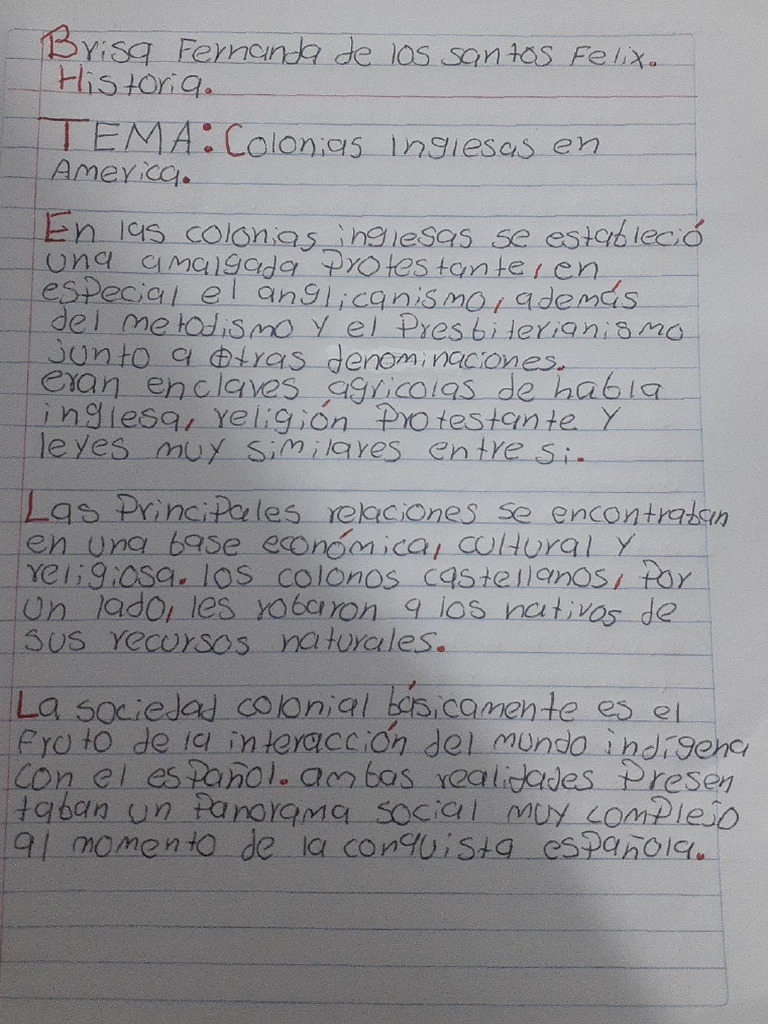 Brisa Fernanda de los santos Felix.
Historia.
TEMA: Colonias inglesas en
America.
En las colonias inglesas se estableció
una amalgada Protestante, en
especial el anglicanismo, además
del metodismo y el Presbiterianismo
junto a otras denominaciones.
eran enclaves agrícolas de habla
inglesa, religión Protestante y
leyes muy similares entre si.
Las Principales relaciones se encontraban
en una base económica, cultural y
religiosa. los colonos castellanos, Por
un lado, les robaron a los nativos de
sus recursos naturales.
La sociedad colonial básicamente es el
fruto de la interacción del mundo indígena
con el español. ambas realidades Presen
taban un Panorama social muy complejo
al momento de la conquista española.